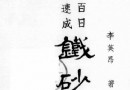 百日
速成
鐵砂
李英昂 著